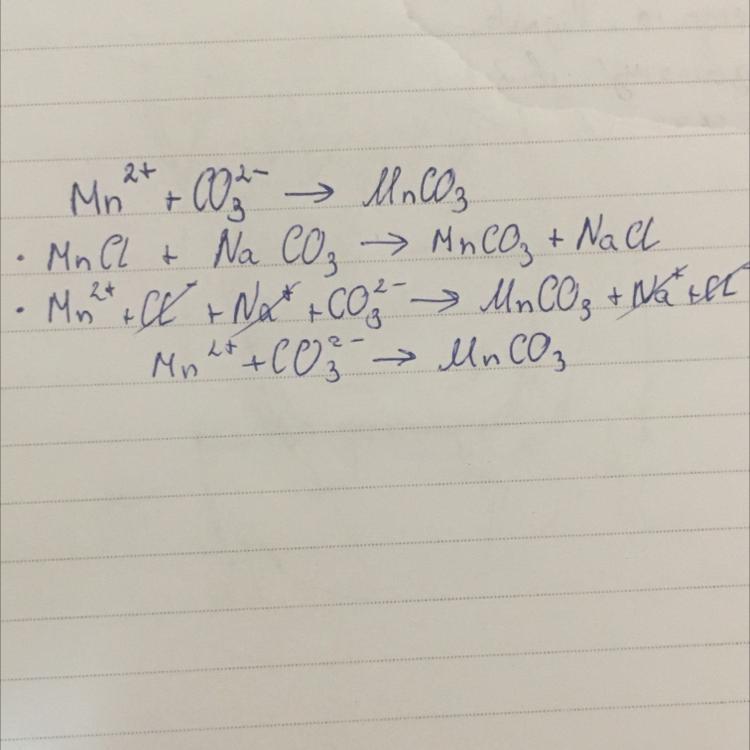 Mn²⁺ + CO₃²⁻ → MnCO₃
· MnCl + Na CO₃ → MnCO₃ + NaCl
· Mn²⁺ + Cl⁻ + Na⁺ + CO₃²⁻ → MnCO₃ + Na⁺ + Cl⁻
Mn²⁺ + CO₃²⁻ → MnCO₃